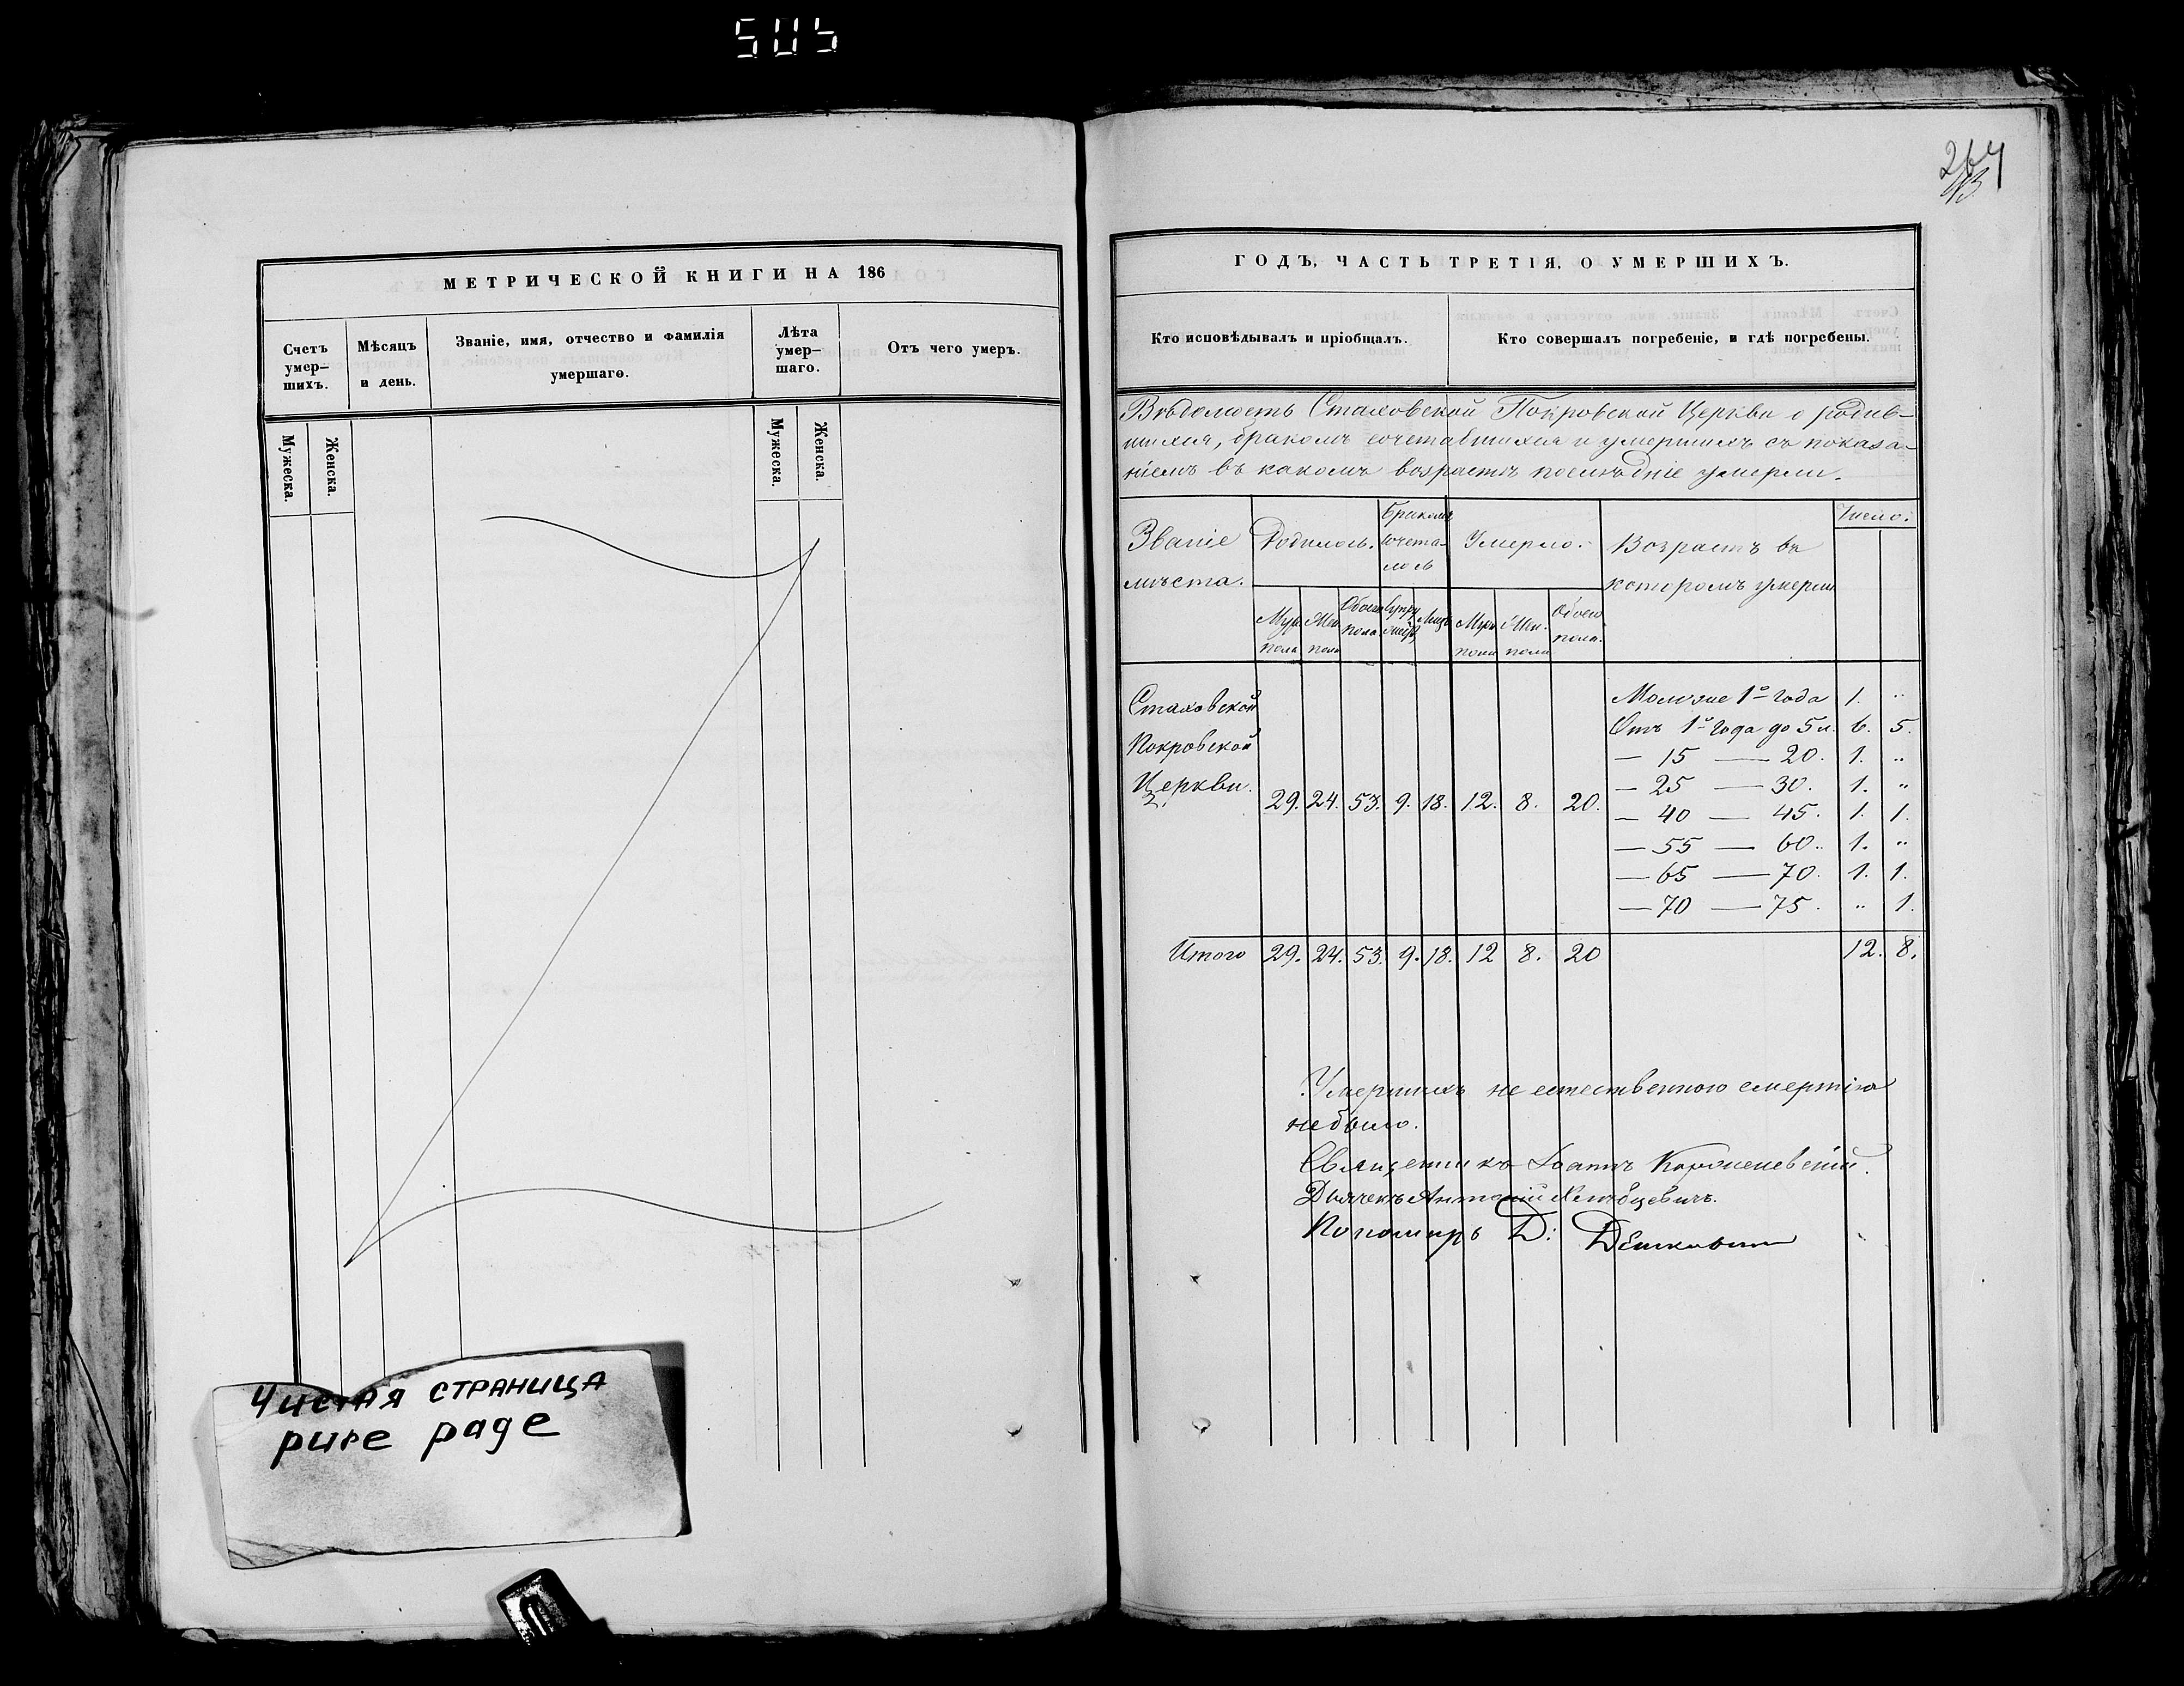 505
МЕТРИЧЕСКОЙ КНИГИ НА 186
Счетъ умер-шихъ.
Мѣсяцъ и день.
Званіе, имя, отчество и фамилія умершаго.
Лѣта умер-шаго.
Отъ чего умеръ.
Мужеска.
Женска.
Мужеска.
Женска.
Чистая страница
pure page
264
ГОДЪ, ЧАСТЬ ТРЕТІЯ, О УМЕРШИХЪ.
Кто исповѣдывалъ и пріобщалъ.
Кто совершалъ погребеніе, и гдѣ погребены.
Вѣдомость Стаховской Покровской Церкви о родив-
шихся, бракомъ сочетавшихся и умершихъ съ показа-
ніемъ въ какомъ возрастѣ послѣдніе умерли.
Званіе мѣста.
Родилось.
Бракомъ сочета-лось
Умерло.
Возрастъ въ которомъ умерли
Число.
Муж. пола
Жен. пола
Обоего пола
Супру жествъ
Лицъ
Муж. пола
Жен. пола
Обоего пола.
Стаховской
Покровской
Церкви. 29. 24. 53. 9. 18. 12. 8. 20.
Моложе 1го года 1. "
Отъ 1го года до 5 л. 6. 5.
— 15 — 20. 1. "
— 25 — 30. 1. "
— 40 — 45. 1. 1.
— 55 — 60. 1. "
— 65 — 70. 1. 1.
— 70 — 75. " 1.
Итого 29. 24. 53. 9. 18. 12 8. 20 12. 8.
Умершихъ не естественною смертію
небыло.
Священникъ Іоаннъ
Дьячекъ Антоній
Пономарь Д: